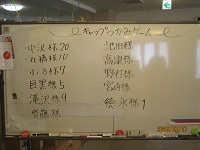 キャップつかみゲーム
中沢様20
丸橋様10
小方様7
目黒様5
滝沢様9
齋藤様
池田様
高津様
野村様
宮崎様
徳永様1